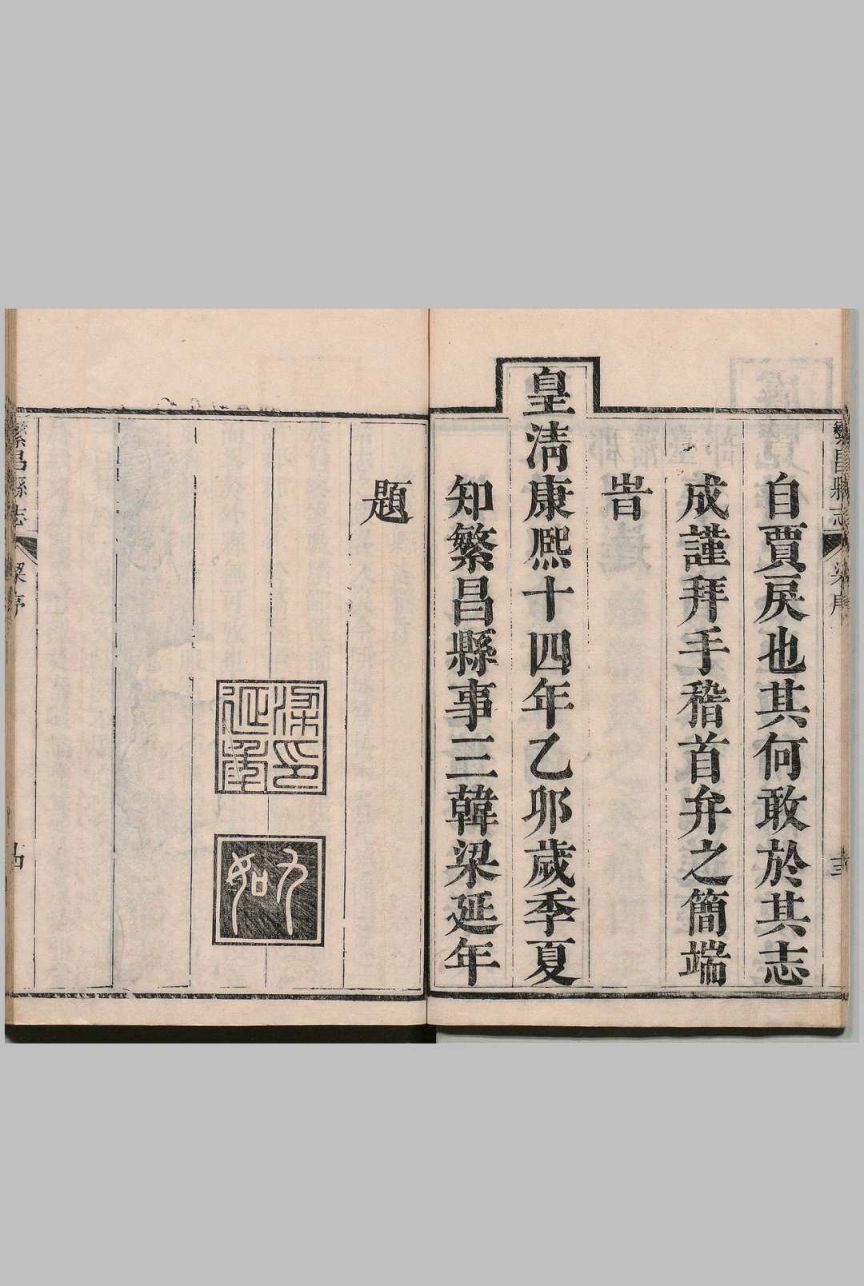 繁昌縣志 梁序
自賈戾也其何敢於其志
成謹拜手稽首弁之簡端
旹
皇淸康熈十四年乙卯歲季夏
知繁昌縣事三韓梁延年
題
梁印延年
九如
繁昌縣志 梁序